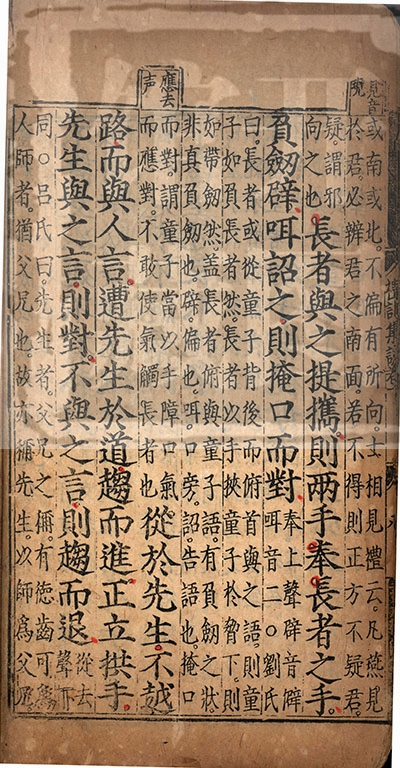 見音
現
或南或北。不偏有所向。士相見禮云。凡燕見
於君。必辨君之南面。若不得則正方。不疑君。
疑。謂邪
向之也
長者與之提攜。則兩手奉長者之手。
負劒辟咡詔之。則掩口而對
奉上聲辟音僻
咡音二○劉氏
曰。長者或從童子背後而俯首與之語。則童
子如負長者然。長者以手挾童子於脅下。則
如帶劒然。盖長者俯與童子語。有負劒之狀
非真負劒也。辟偏也。咡。口旁。詔。告語也。掩口
應去
声
而對。謂童子當以手障口氣。
而應對。不敢使氣觸長者也
從於先生。不越
路而與人言。遭先生於道。趨而進。正立拱手。
先生與之言。則對。不與之言。則趨而退。
從去
聲下
同○呂氏曰。先生者。父兄之稱。有德齒可為
人師者。猶父兄也。故亦稱先生。以師為父兄